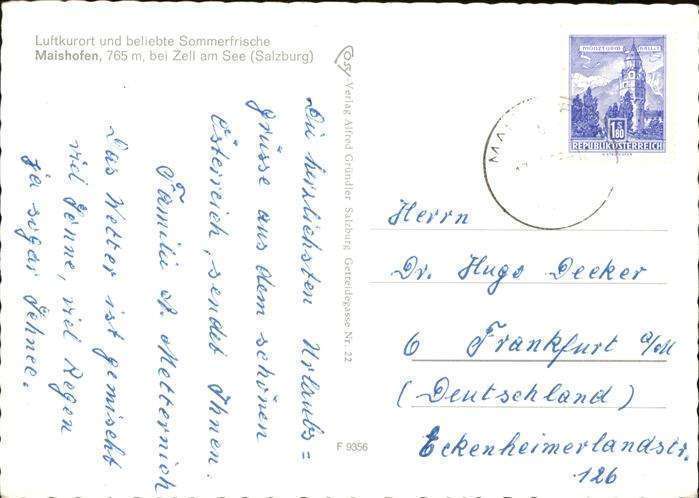 Luftkurort und beliebte Sommerfrische
Maishofen, 765 m, bei Zell am See (Salzburg)
Die herrlichsten Urlaubs=
grüsse aus dem schönen
Österreich, sendet Ihnen.
Familie A. Metternich
Das Wetter ist gemischt
viel Sonne, viel Regen
ja sogar Schnee.
Cosy Verlag Alfred Gründler Salzburg Getreidegasse Nr. 22
F 9356
MÜNZTURM HALL I. T.
1S80
REPUBLIK ÖSTERREICH
Herrn
Dr. Hugo Decker
6 Frankfurt a/M
(Deutschland)
Eckenheimerlandstr.
126